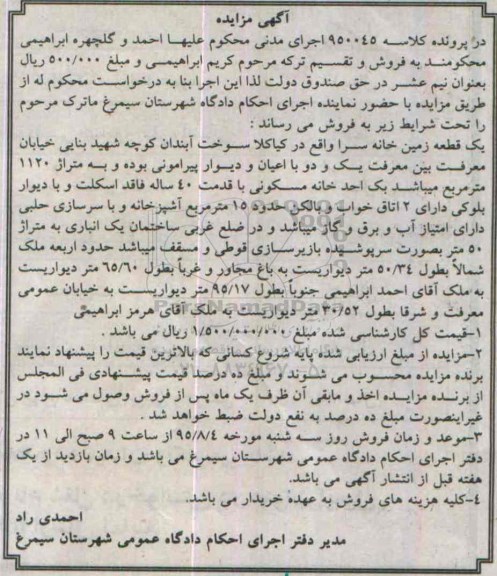 آگهی مزایده
در پرونده کلاسه ۹۵۰۰۴۵ اجرای مدنی محکوم علیها احمد و گلچهره ابراهیمی
محکومند به فروش و تقسیم ترکه مرحوم کریم ابراهیمی و مبلغ ۵۰۰/۰۰۰ ریال
بعنوان نیم عشر در حق صندوق دولت لذا این اجرا بنا به درخواست محکوم له از
طریق مزایده با حضور نماینده اجرای احکام دادگاه شهرستان سیمرغ ماترک مرحوم
را تحت شرایط زیر به فروش می رساند :
یک قطعه زمین خانه سرا واقع در کیاکلا سوخت آبندان کوچه شهید بنایی خیابان
معرفت بین معرفت یک و دو با اعیان و دیوار پیرامونی بوده و به متراژ ۱۱۲۰
مترمربع میباشد یک احد خانه مسکونی با قدمت ۴۰ ساله فاقد اسکلت و با دیوار
بلوکی دارای ۲ اتاق خواب و بالکن حدود ۱۵ مترمربع آشپزخانه و با سرسازی حلبی
دارای امتیاز آب و برق و گاز میباشد و در ضلع غربی ساختمان یک انباری به متراژ
۵۰ متر بصورت سرپوشیده بازیرسازی قوطی و مسقف میباشد حدود اربعه ملک
شمالاً بطول ۵۰/۳۴ متر دیواریست به باغ مجاور و غرباً بطول ۶۵/۶۰ متر دیواریست
به ملک آقای احمد ابراهیمی جنوباً بطول ۹۵/۱۷ متر دیواریست به خیابان عمومی
معرفت و شرقا بطول ۳۰/۵۲ متر دیواریست به ملک آقای هرمز ابراهیمی
۱-قیمت کل کارشناسی شده مبلغ ۱/۵۰۰/۰۰۰/۰۰۰ ریال می باشد .
۲-مزایده از مبلغ ارزیابی شده پایه شروع کسانی که بالاترین قیمت را پیشنهاد نمایند
برنده مزایده محسوب می شوند و مبلغ ده درصد قیمت پیشنهادی فی المجلس
از برنده مزایده اخذ و مابقی آن ظرف یک ماه پس از فروش وصول می شود در
غیراینصورت مبلغ ده درصد به نفع دولت ضبط خواهد شد .
۳-موعد و زمان فروش روز سه شنبه مورخه ۹۵/۸/۴ از ساعت ۹ صبح الی ۱۱ در
دفتر اجرای احکام دادگاه عمومی شهرستان سیمرغ می باشد و زمان بازدید از یک
هفته قبل از انتشار آگهی می باشد.
۴-کلیه هزینه های فروش به عهده خریدار می باشد.
احمدی راد
مدیر دفتر اجرای احکام دادگاه عمومی شهرستان سیمرغ